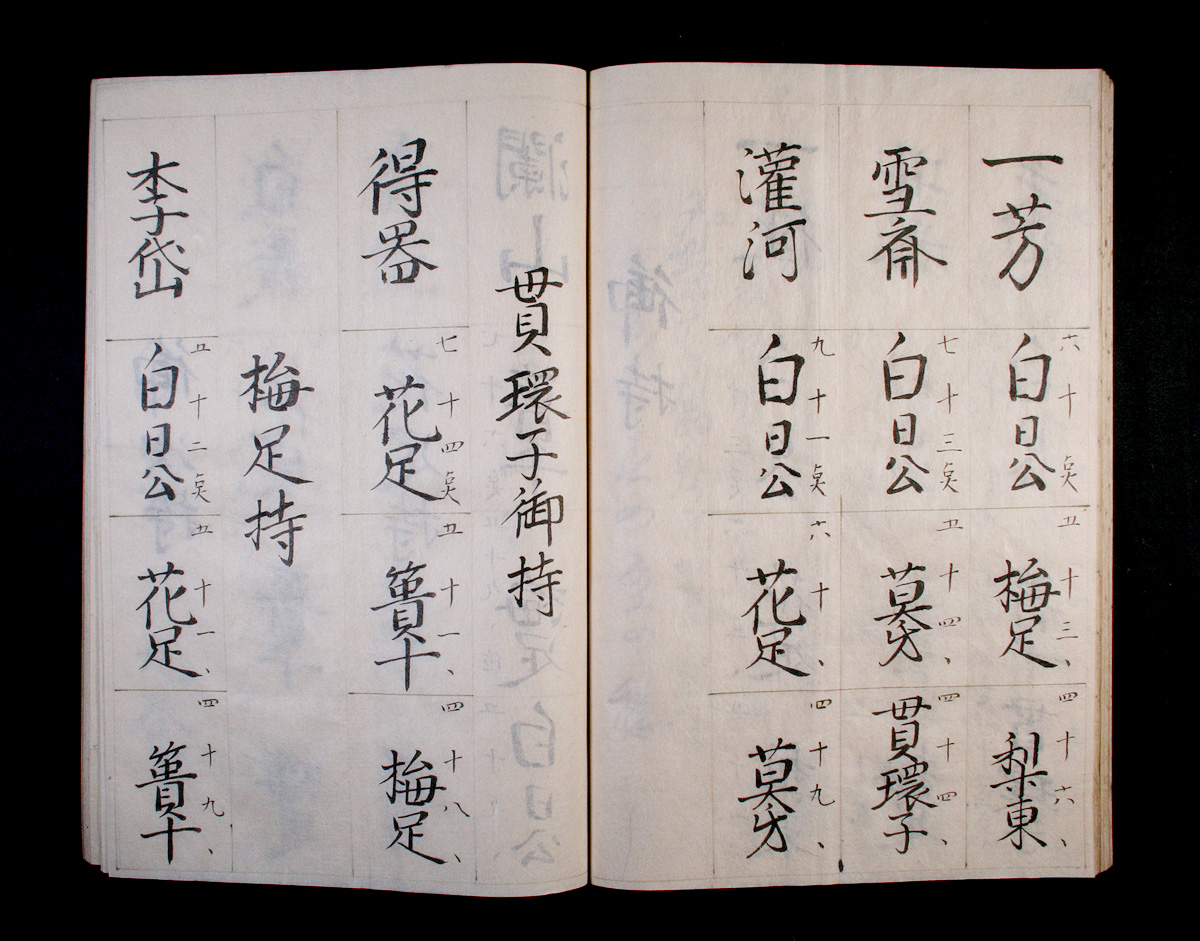 一芳
六十点
白日公
五十三、
梅足
四十六、
梨東
雪斎
七十三点
白日公
五十四、
莫牙
四十四、
貫環子
灌河
九十一点
白日公
六十、
花足
四十九、
莫牙
貫環子御持
得器
七十四点
花足
五十一、
簣十
四十八、
梅足
梅足持
李岱
五十二点
白日公
五十一、
花足
四十九、
簣十